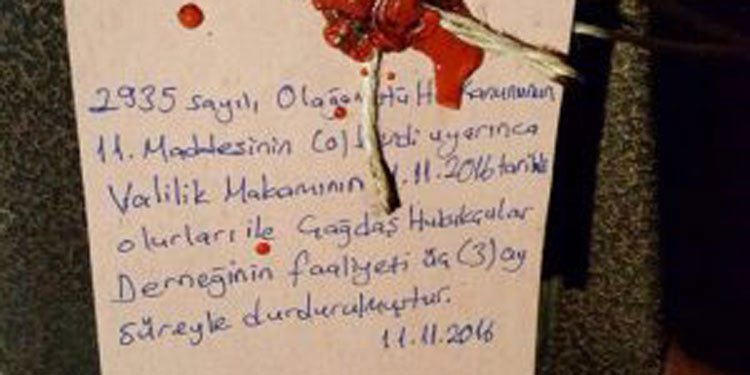 2935 sayılı, Kanununun
11. Maddesinin (o) uyarınca
Valilik Makamının 11.2016 tarihli
olurları ile Çağdaş Hukukçular
Derneğinin faaliyeti üç (3) ay
süreyle durdurulmuştur.
11.11.2016